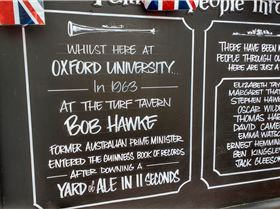 WHILST HERE AT
OXFORD UNIVERSITY...
IN 1963
AT THE TURF TAVERN
BOB HAWKE
FORMER AUSTRALIAN PRIME MINISTER
ENTERED THE GUINNESS BOOK OF RECORDS
AFTER DOWNING A
YARD of ALE IN 11 SECONDS
PEOPLE
THERE HAVE BEEN
PEOPLE THROUGH OU
HERE ARE JUST A
ELIZABETH TAY
MARGARET THAT
STEPHEN HAWK
OSCAR WILD
THOMAS HAR
DAVID CAMER
EMMA WATS
ERNEST HEMMING
BEN KINGSLEY
JACK GLEESO